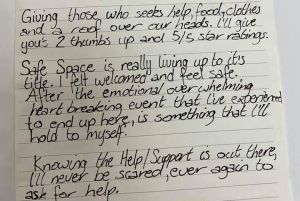 Giving those, who seeks help, food, clothes
and a roof over our heads. I'll give
you's 2 thumbs up and 5/5 star ratings.
Safe Space is really living up to its
title. I felt welcomed and feel safe.
After the emotional overwhelming
heart breaking event that I've experienced
to end up here, is something that I'll
hold to myself.
Knowing the Help/Support is out there,
I'll never be scared, ever again to
ask for help.